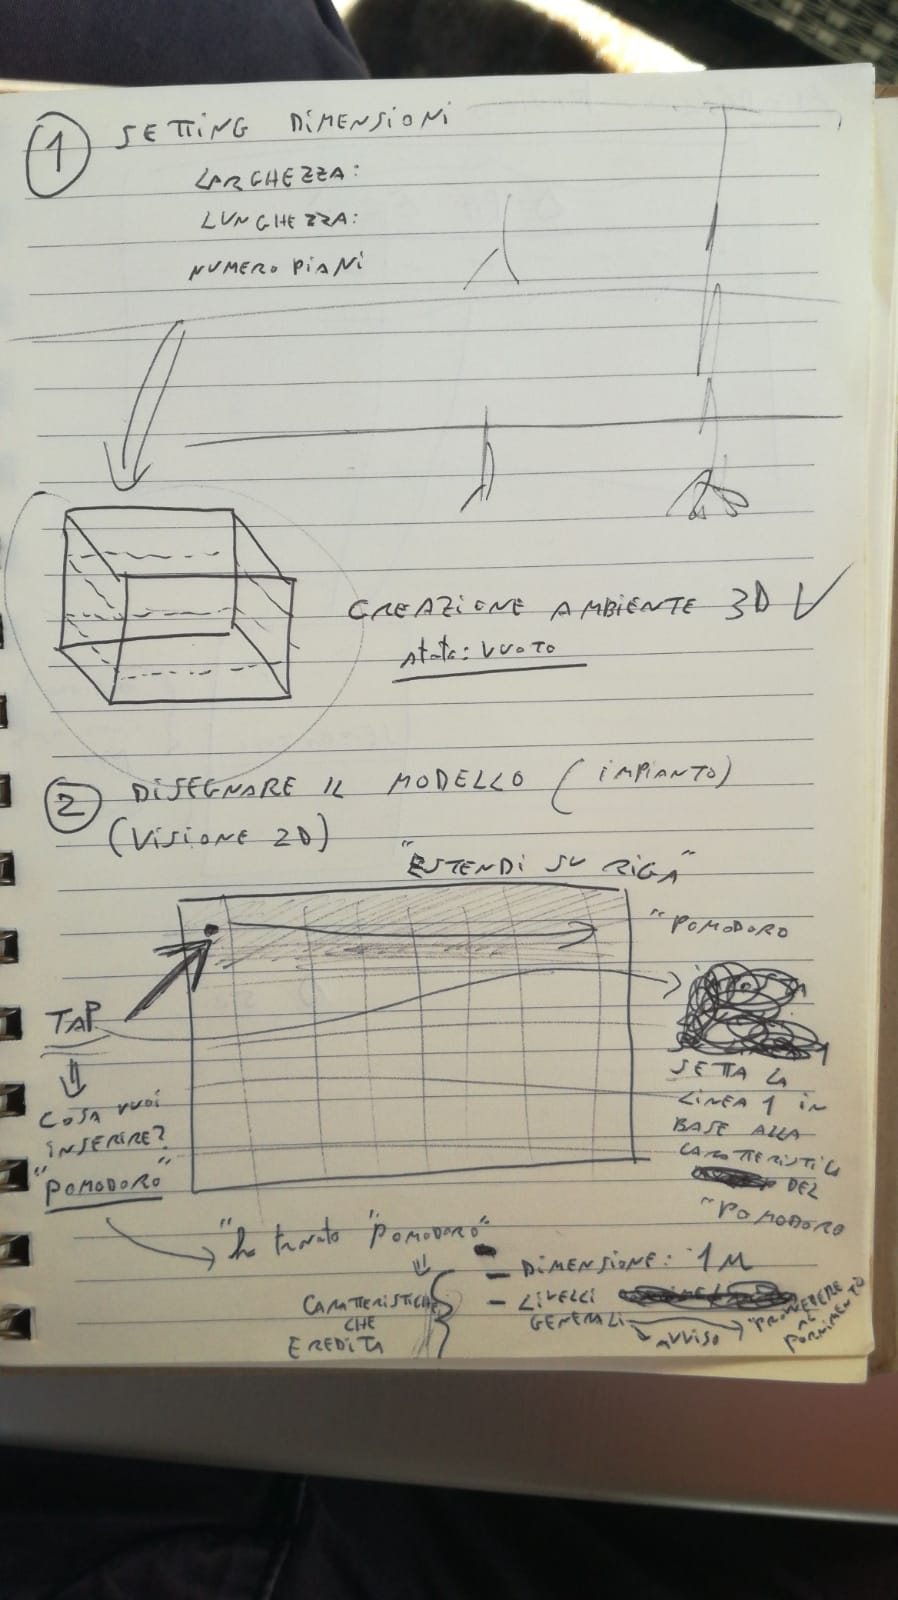 1 SETTING DIMENSIONI
LARGHEZZA:
LUNGHEZZA:
NUMERO PIANI
CREAZIONE AMBIENTE 3D V
stato: VUOTO
2 DISEGNARE IL MODELLO (IMPIANTO)
(VISIONE 2D)
"ESTENDI SU RIGA"
"POMODORO
TAP
COSA VUOI
INSERIRE?
"POMODORO"
SETTA LA
LINEA 1 IN
BASE ALLA
CARATTERISTICA
DEL
"POMODORO
"ho trovato "POMODORO"
CARATTERISTICHE
CHE
EREDITA
- DIMENSIONE: 1M
- LIVELLI
GENERALI
AVVISO
"PROVVEDERE